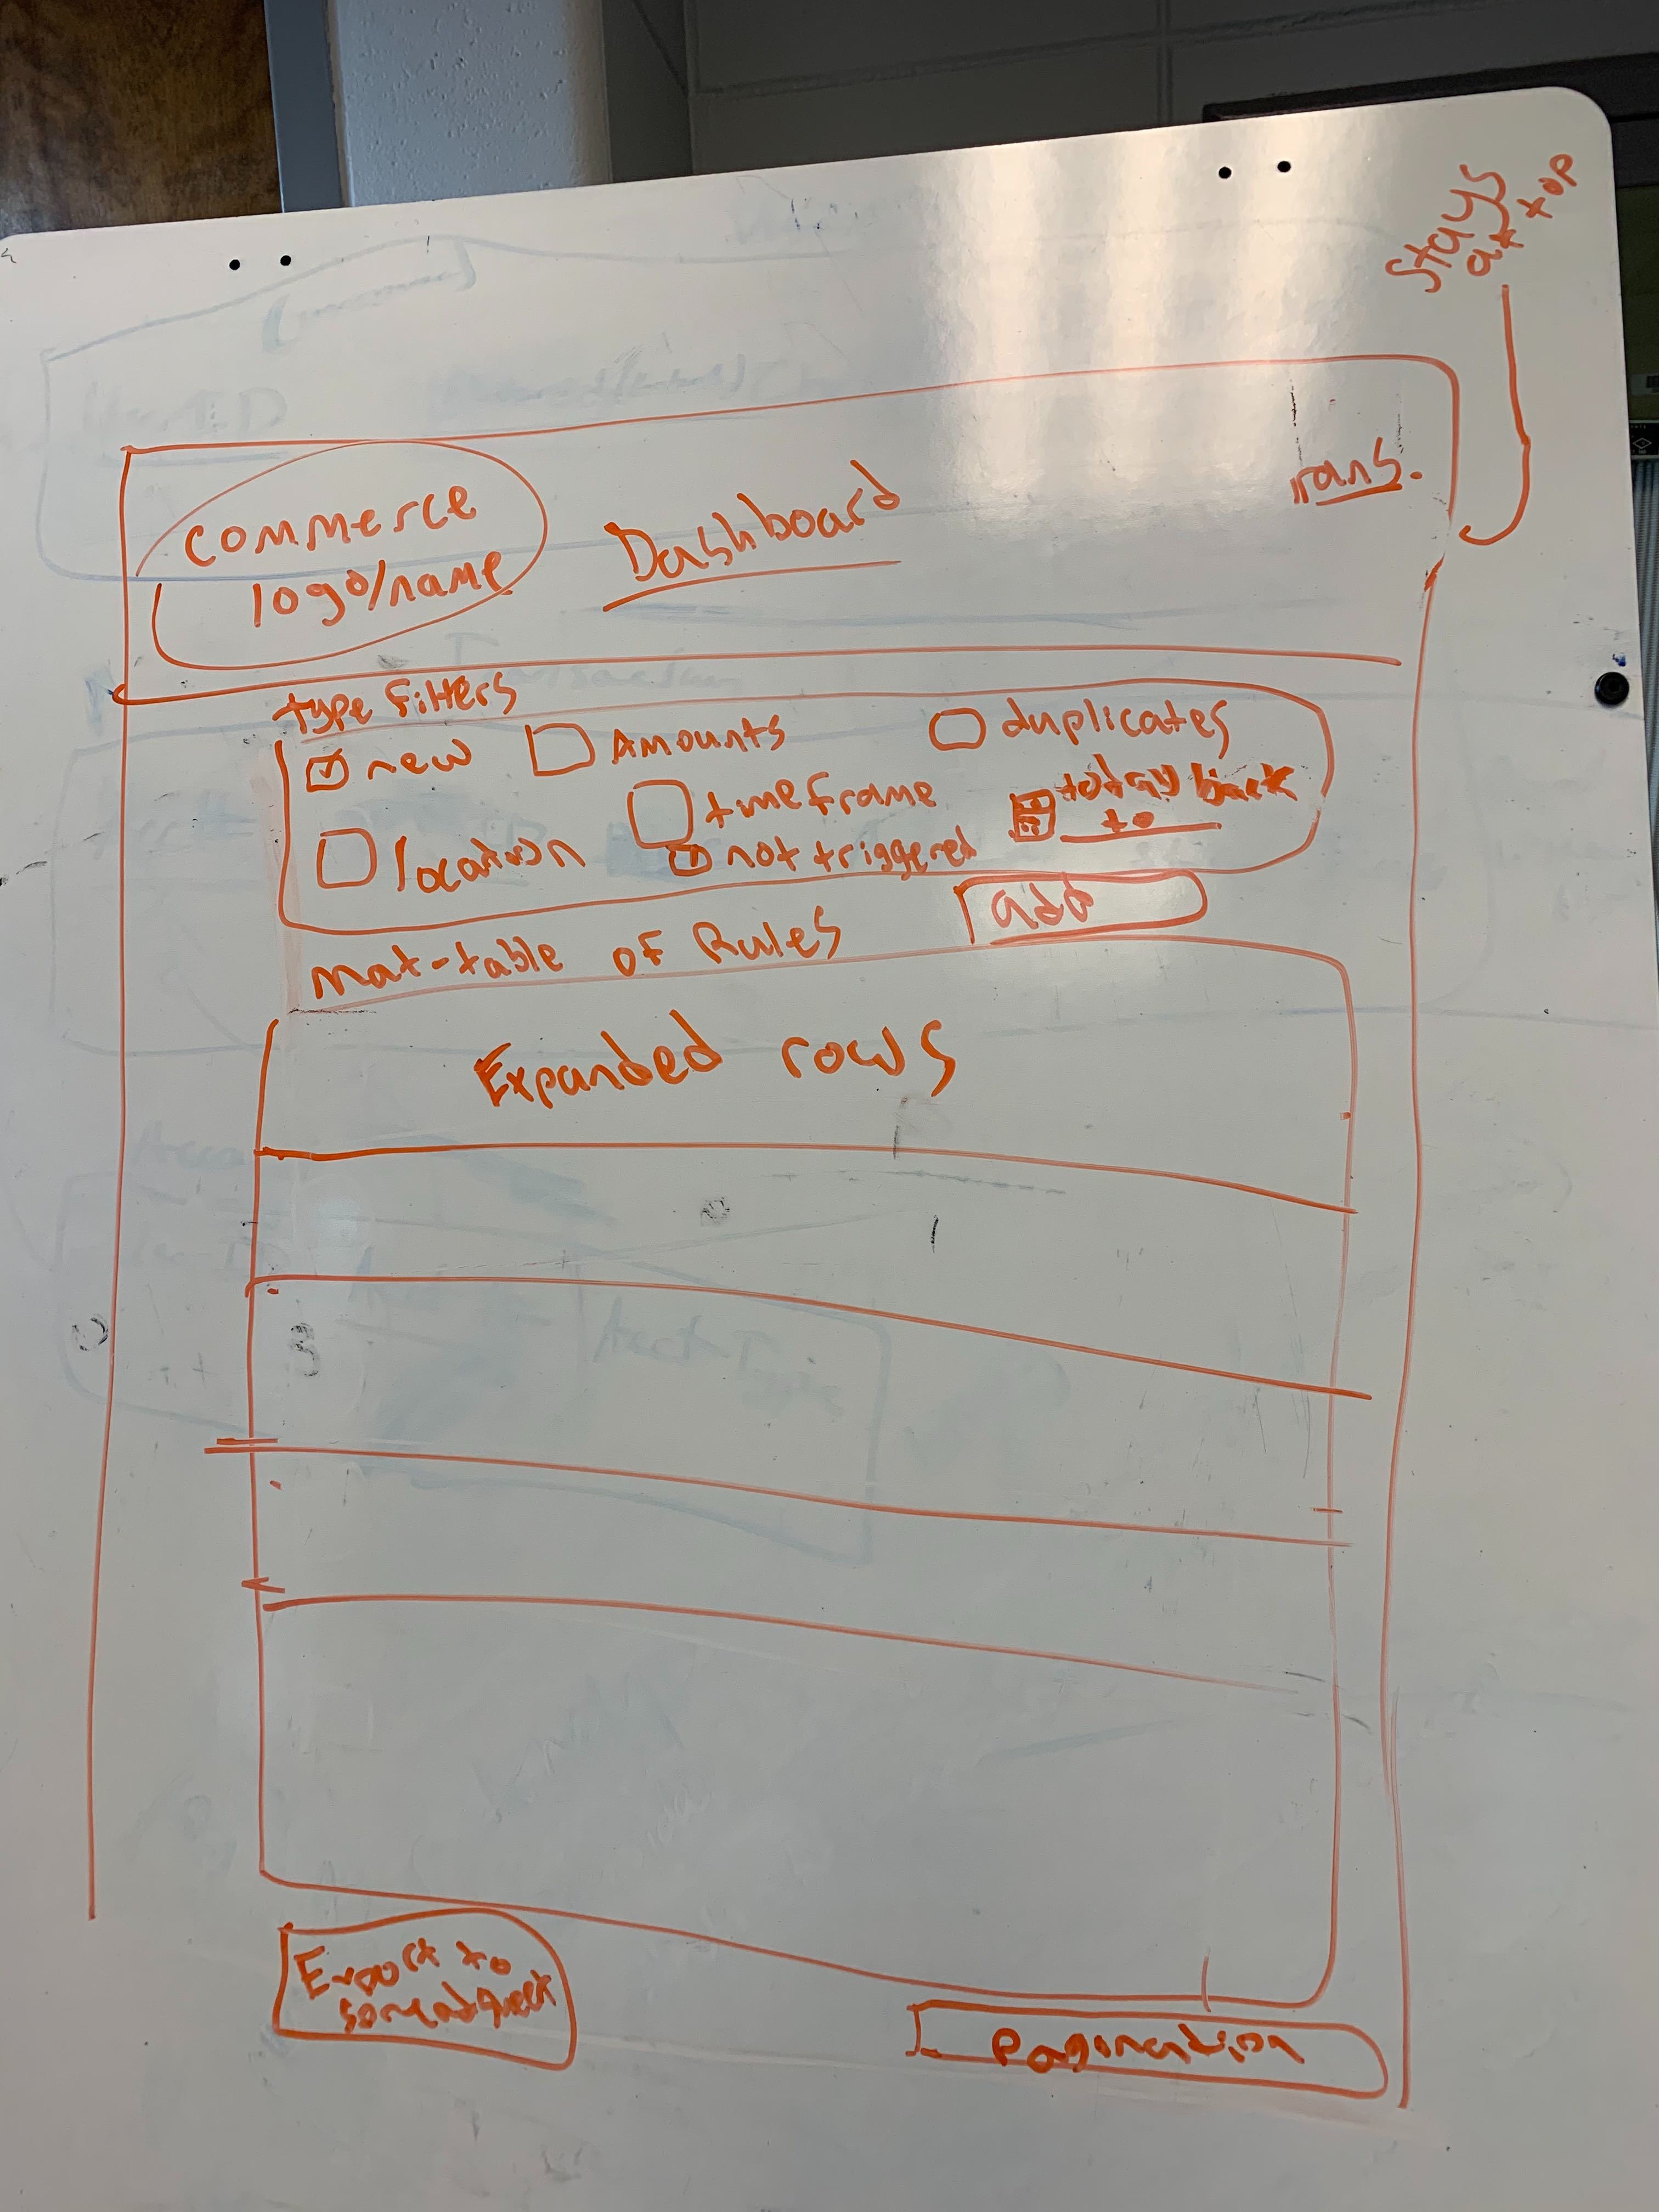 stays
at top
commerce
logo/name
Dashboard
rans.
type filters
new
Amounts
duplicates
timeframe
today back
to
location
not triggered
add
mat-table of Rules
Expanded rows
Export to
spreadsheet
Pagination